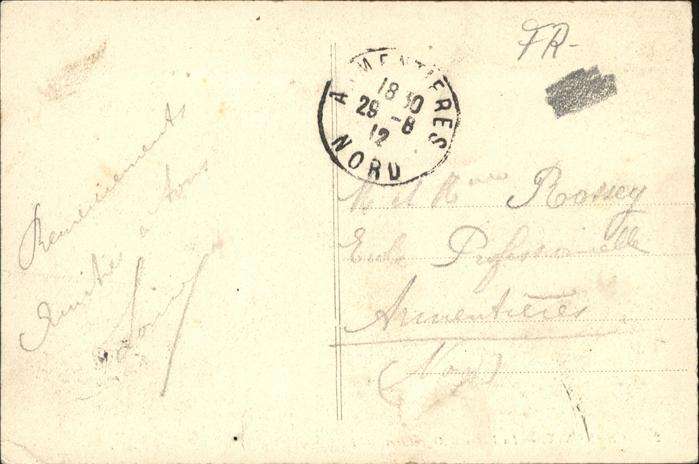 FR-
ARMENTIERES
18 30
29 -8
12
NORD
Remerciements
Amitiés à tous
M et Mme Rossey
Ecole Professionnelle
Armentières
(Nord)